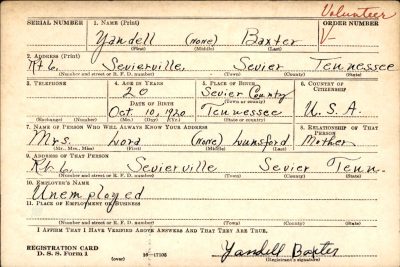 Volunteer
SERIAL NUMBER 1. NAME (Print) ORDER NUMBER
Yandell (None) Baxter V
(First) (Middle) (Last)
2. ADDRESS (Print)
Rt 6. Sevierville, Sevier Tennessee
(Number and street or R. F. D. number) (Town) (County) (State)
3. TELEPHONE 4. AGE IN YEARS 5. PLACE OF BIRTH 6. COUNTRY OF CITIZENSHIP
20 Sevier County
DATE OF BIRTH (Town or county)
Oct. 10, 1920 Tennessee U.S.A.
(Exchange) (Number) (Mo.) (Day) (Yr.) (State or country)
7. NAME OF PERSON WHO WILL ALWAYS KNOW YOUR ADDRESS 8. RELATIONSHIP OF THAT PERSON
Mrs. (None) Lunsford Mother
(Mr., Mrs., Miss) (First) (Middle) (Last)
9. ADDRESS OF THAT PERSON
Rt 6. Sevierville Sevier Tenn.
(Number and street or R. F. D. number) (Town) (County) (State)
10. EMPLOYER'S NAME
Unemployed
11. PLACE OF EMPLOYMENT OR BUSINESS
(Number and street or R. F. D. number) (Town) (County) (State)
I AFFIRM THAT I HAVE VERIFIED ABOVE ANSWERS AND THAT THEY ARE TRUE.
REGISTRATION CARD
D. S. S. Form 1 Yandell Baxter
(Registrant's signature)